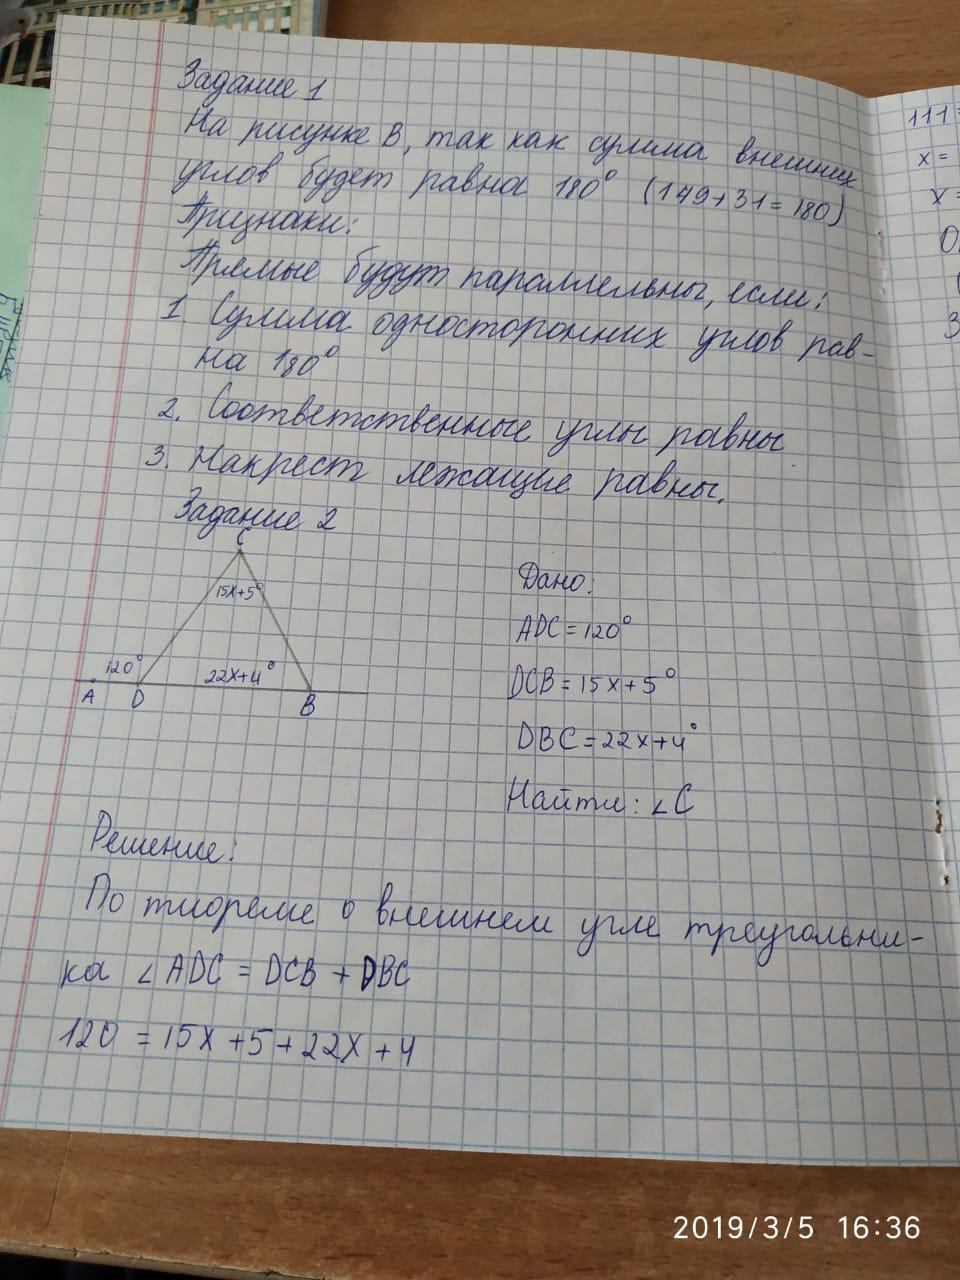 Задание 1
На рисунке В, так как сумма внешних
углов будет равна 180° (149+31=180)
Признаки:
Прямые будут параллельны, если:
1. Сумма односторонних углов рав-
на 180°
2. Соответственные углы равны
3. Накрест лежащие равны.
Задание 2
C
15x+5°
120°
22x+4°
A
D
B
Дано:
ADC=120°
DCB=15x+5°
DBC=22x+4°
Найти: ∠C
Решение:
По тиореме о внешнем угле треугольни-
ка ∠ADC = DCB + DBC
120 = 15x+5+22x+4
111
x =
x
2019/3/5 16:36